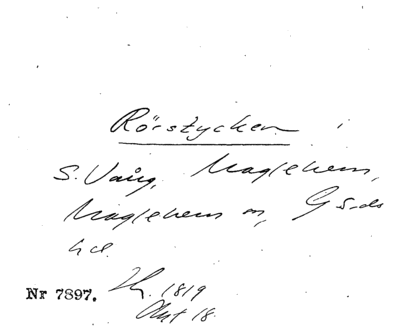 Rörstycken i
S. Vång, Maglehem,
Maglehems sn, Gärds
hd.
Nr 7897. 1819
Akt 18.